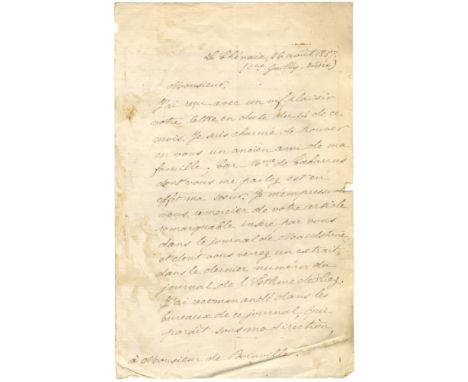 La Chénaie, 26 août 185
Monsieur,
J'ai reçu avec un vif plaisir
votre lettre en date du 14 de ce
mois. Je suis charmé de trouver
en vous un ancien ami de ma
famille. Car Mme de Cabarrus
dont vous me parlez est en
effet ma sœur. Je m'empresse de
vous remercier de votre article
remarquable inséré par vous
dans le journal de Maidstone
et dont vous verrez un extrait
dans le dernier numéro du
journal de l'Isthme de Suez.
J'ai recommandé dans les
bureaux de ce journal, qui
paraît sous ma direction,
à Monsieur de Boinville.